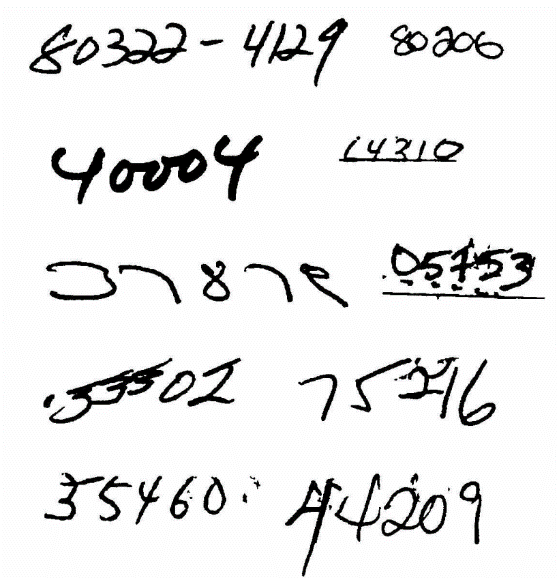 80322-4129 80206
40004 14310
37878 05753
.35502 75216
35460 44209